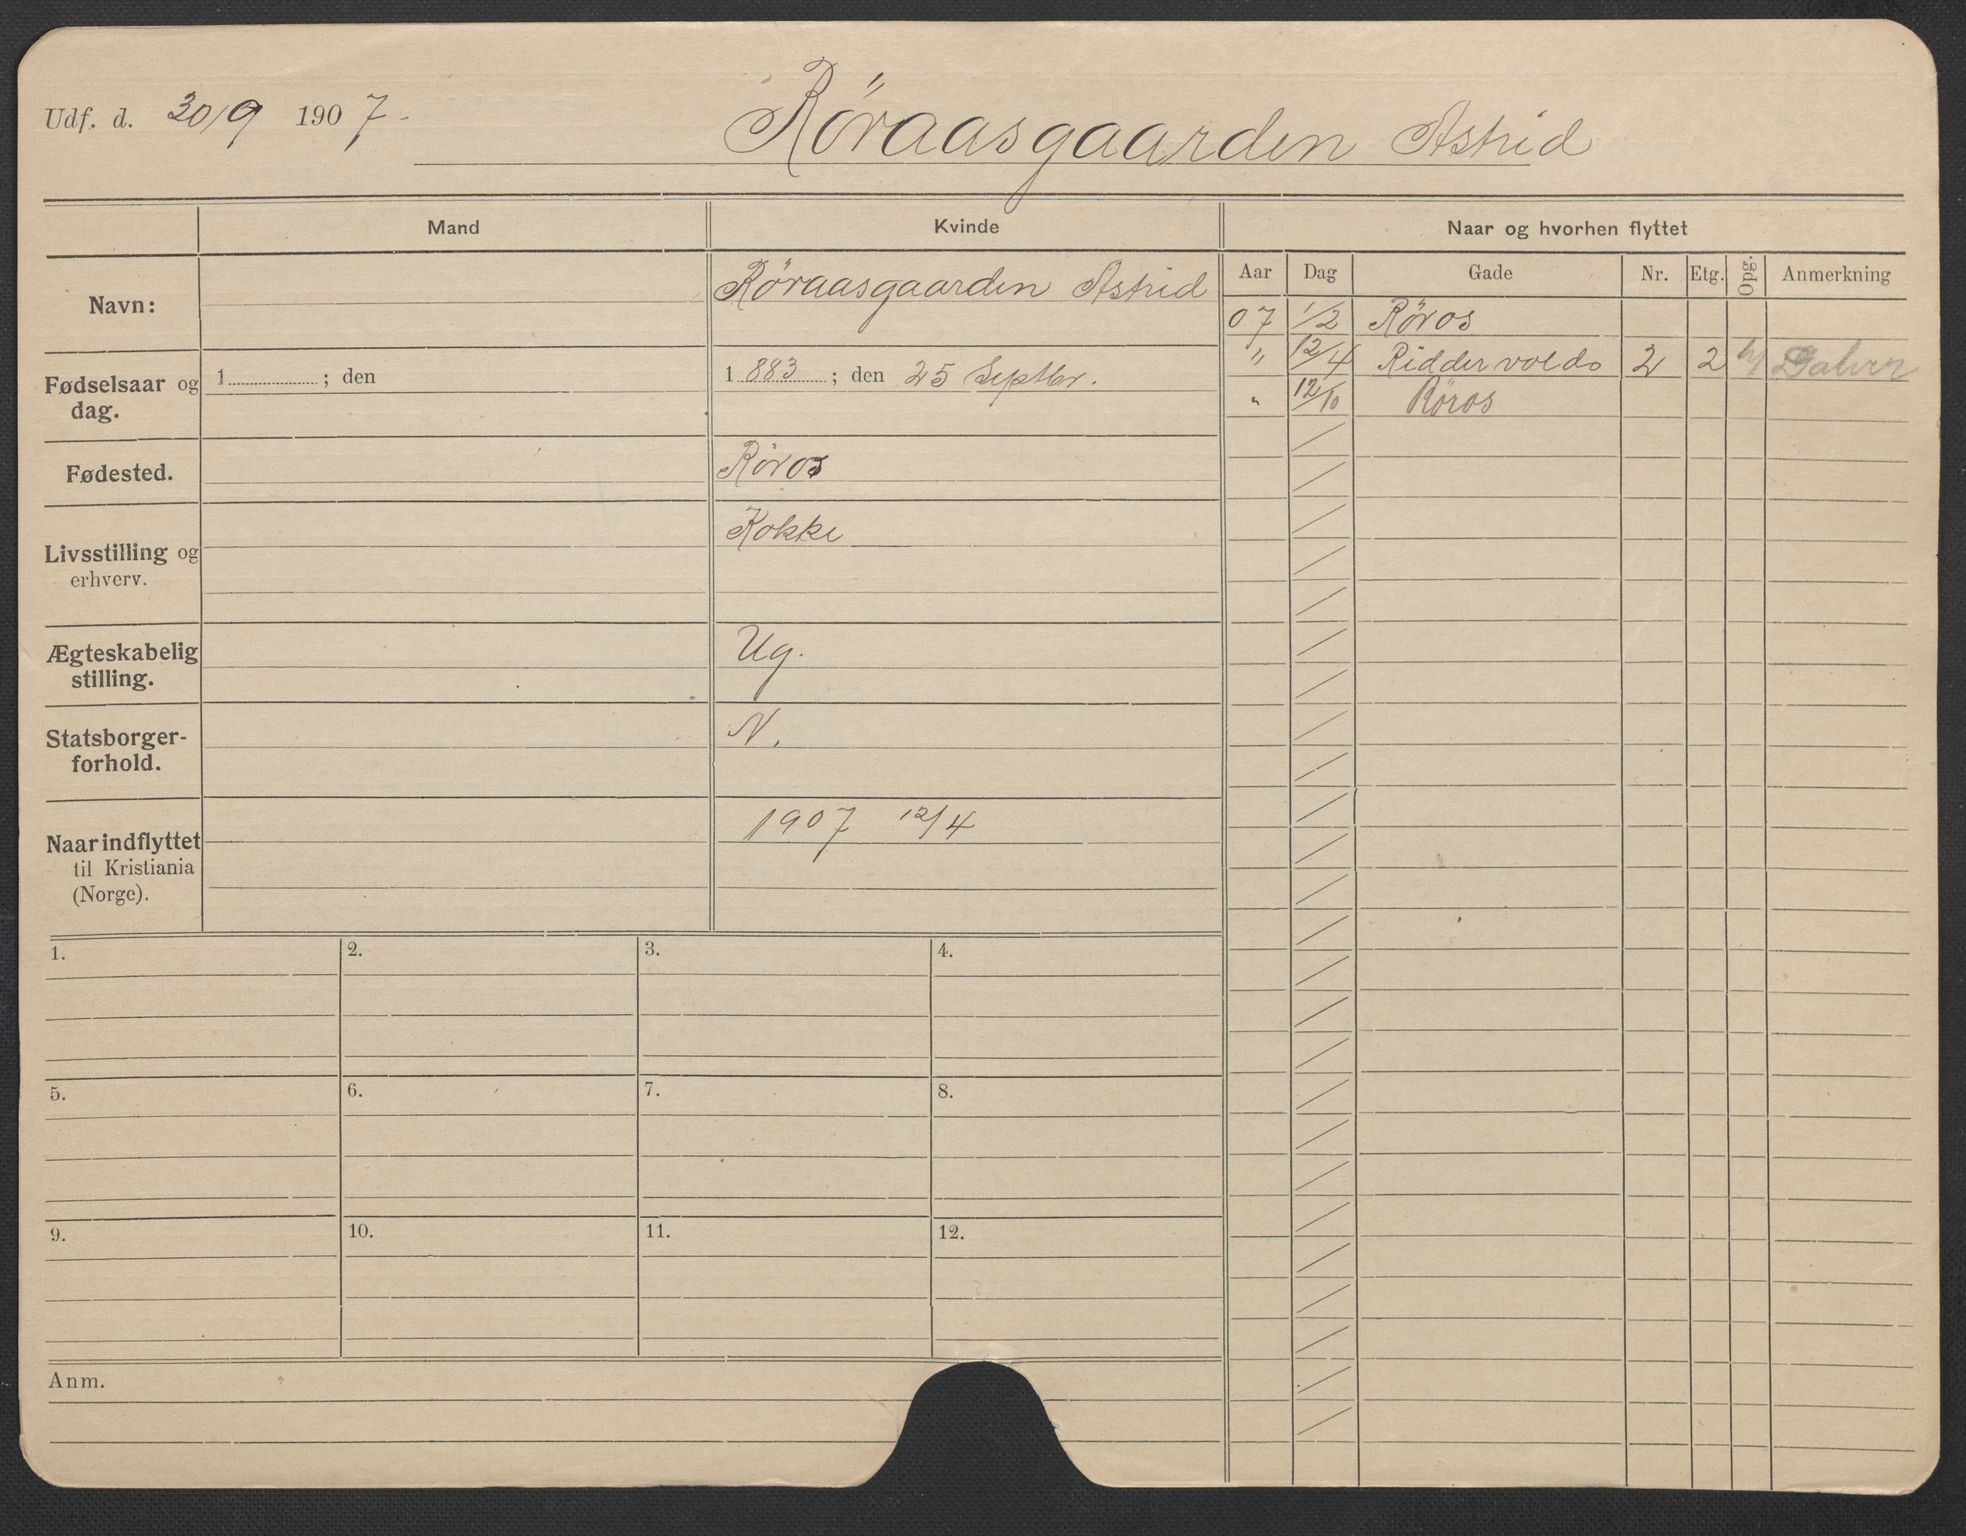 Udf. d. 30/9 1907.
Röraasgaarden Astrid
Mand Kvinde Naar og hvorhen flyttet
Aar Dag Gade Nr. Etg. Opg. Anmerkning
Navn: Röraasgaarden Astrid
07 1/2 Röros
" 12/4 Riddervolds 2 2
" 12/10 Röros
Fødselsaar og dag. 1 ; den 1 883 ; den 25 Septbr.
Fødested. Röros
Livsstilling og erhverv. Kokke
Ægteskabelig stilling. Ug.
Statsborger-forhold. N.
Naar indflyttet til Kristiania (Norge). 1907 12/4
1. 2. 3. 4.
5. 6. 7. 8.
9. 10. 11. 12.
Anm.